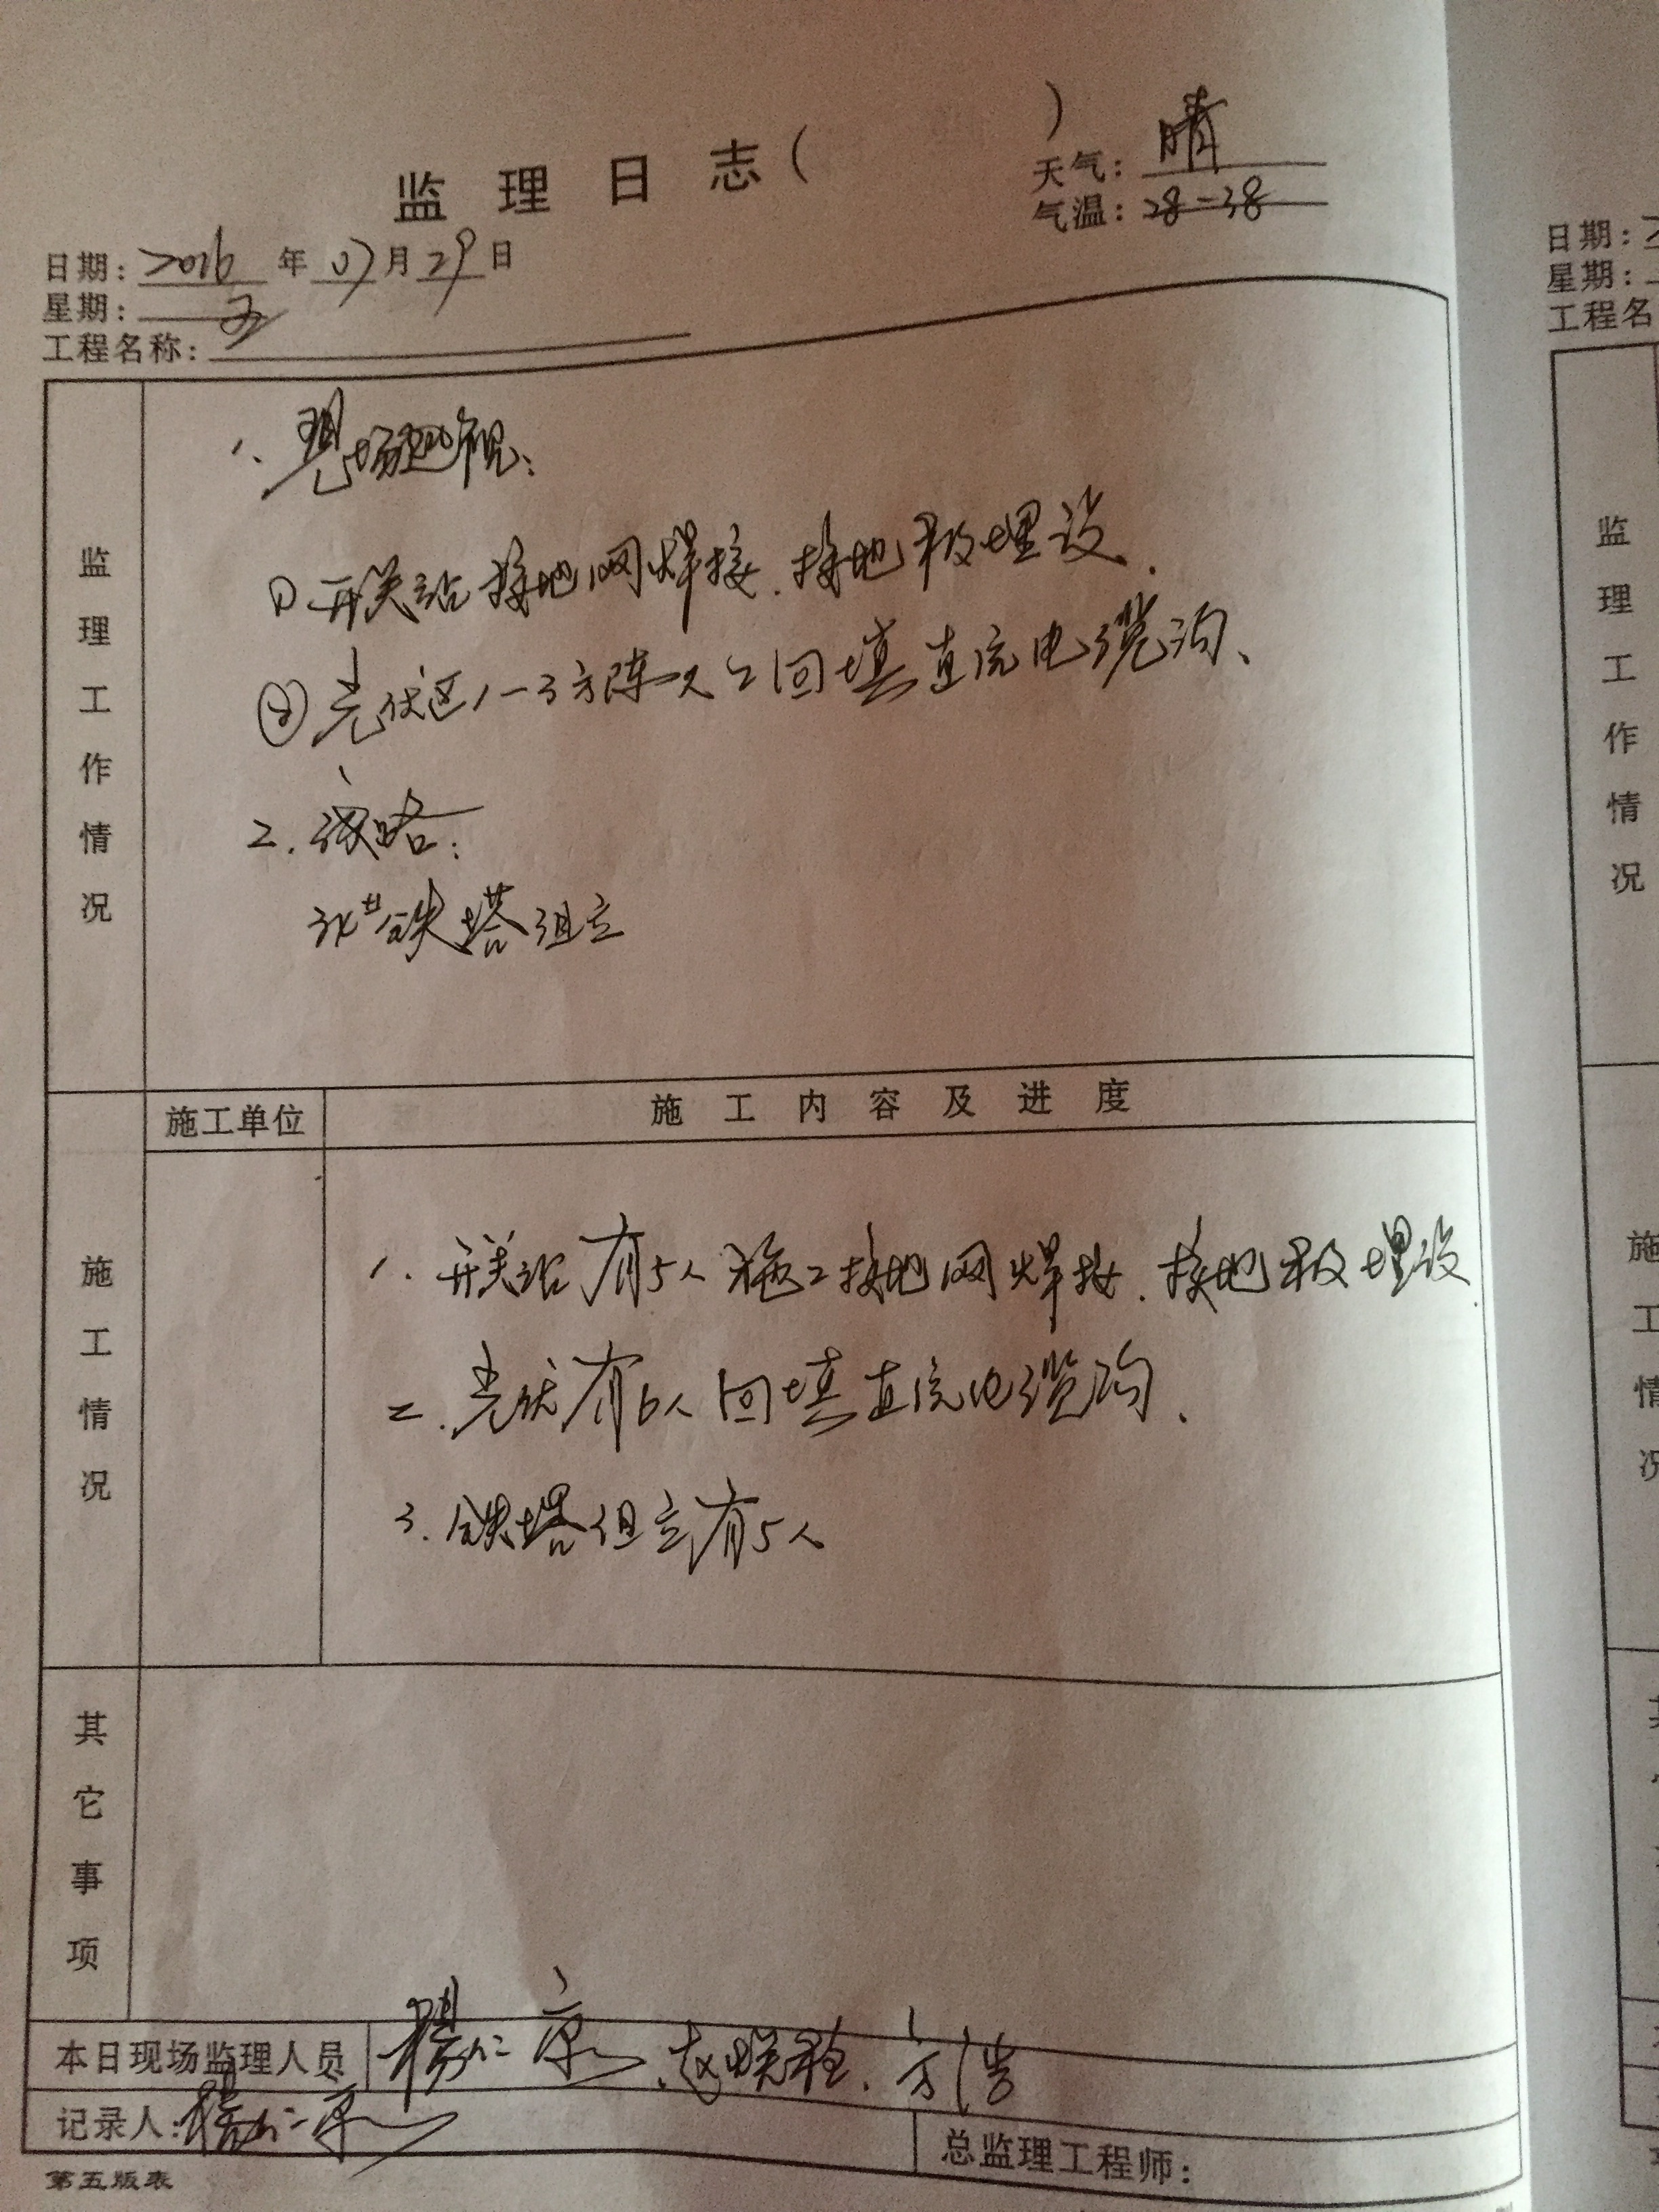 监理日志( )
天气: 晴
气温: 28-38
日期: 2016 年 07 月 29 日
星期: 五
工程名称:
监理工作情况
1、现场巡视:
①开关站接地网焊接、接地极埋设.
②光伏区1-3方阵人工回填直流电缆沟、
2. 线路:
铁塔组立
施工单位
施工内容及进度
施工情况
1. 开关站有5人施工接地网焊接、接地极埋设.
2. 光伏有6人回填直流电缆沟、
3. 铁塔组立有5人
其它事项
本日现场监理人员 杨仁京、赵 、方浩
记录人: 杨仁京
总监理工程师:
第五版表
日期:
星期:
工程名
监理工作情况
施工情况